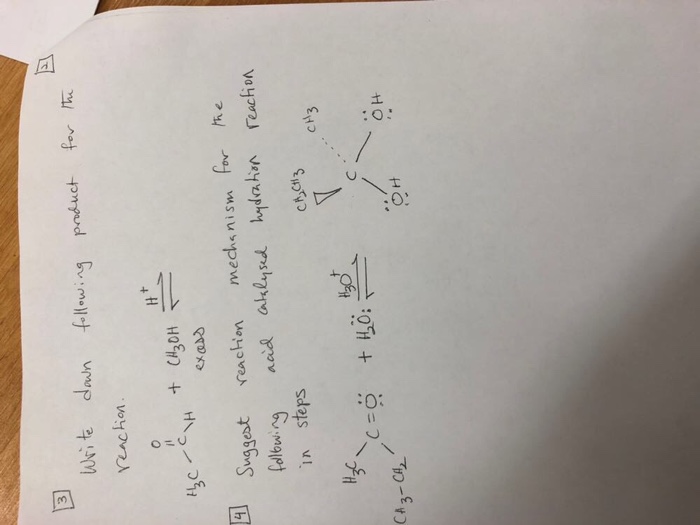 2
3 Write down following product for the
reaction.
O
||
H3C - C \ H + CH3OH H+ ⇌
excess
4 Suggest reaction mechanism for the
following acid catalysed hydration reaction
in steps
H3C
CH3-CH2 C=Ö: + H2Ö: H3O+ ⇌
CH2CH3 CH3
C
:ÖH :ÖH